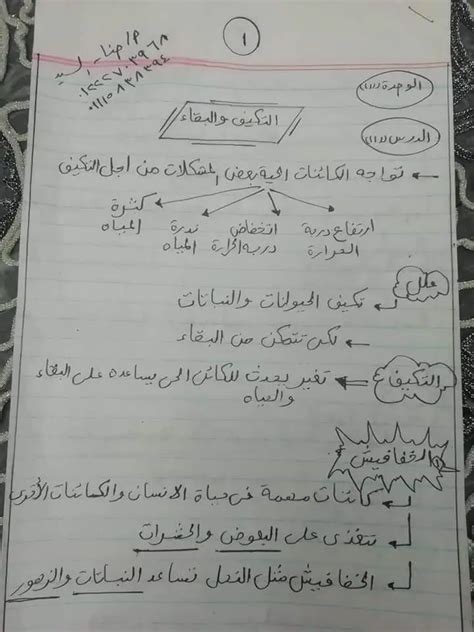 ١
م/ هناء السيد
٠١٢٢٢٧٠٣٩٦٨
٠١١١٥٨٣٨٣٩٤
الوحدة (١)
التكيف والبقاء
الدرس (١)
تواجه الكائنات الحية بعض المشكلات من اجل التكيف
ارتفاع درجة الحرارة
انخفاض درجة الحرارة
ندرة المياه
كثرة المياه
علل
تكيف الحيوانات والنباتات
لكى تتمكن من البقاء
التكيف
تغير يحدث للكائن الحى يساعده على البقاء
والحياه
الخفافيش
كائنات مهمة فى حياة الانسان والكائنات الأخرى
تتغذى على البعوض والحشرات
الخفافيش مثل النحل تساعد النباتات والزهور